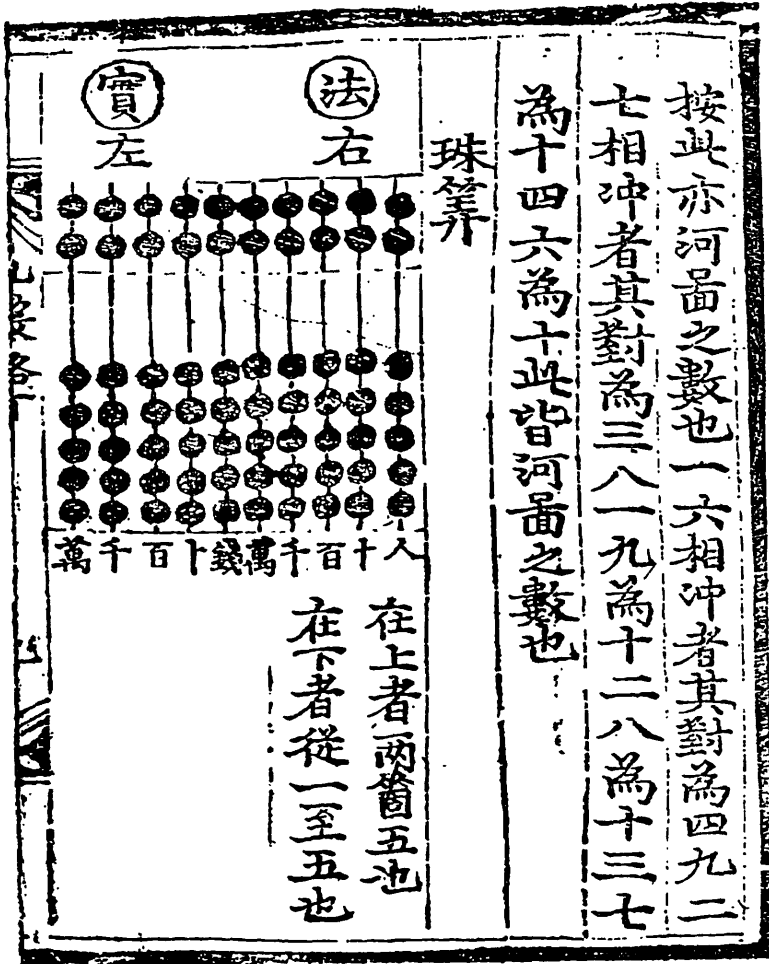 按此亦河啚之數也一六相冲者其對為四九二
七相冲者其對為三八一九為十二八為十三七
為十四六為十此皆河啚之數也
珠筭
法右
實左
人十百千萬錢卜百千萬
在上者兩箇五也
在下者從一至五也